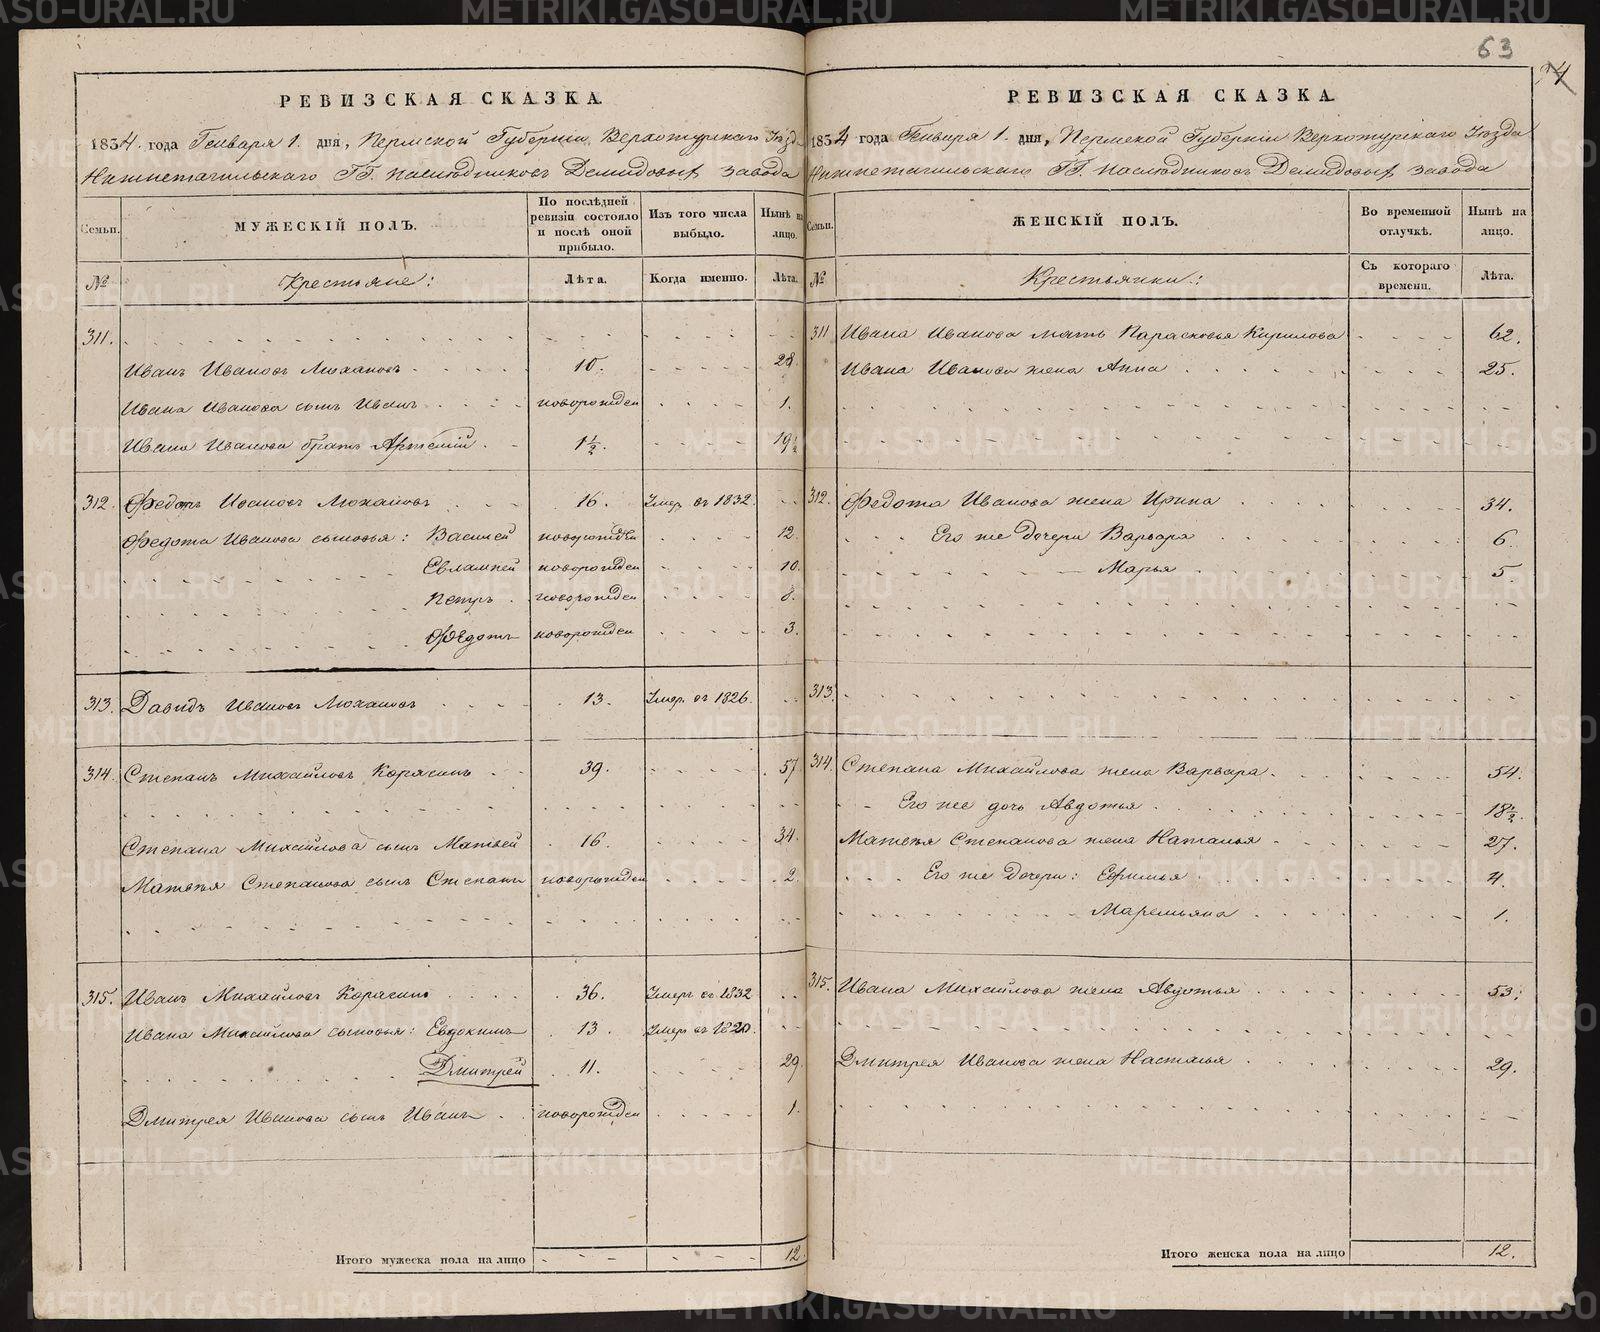 63
34
РЕВИЗСКАЯ СКАЗКА.
1834 года Генваря 1. дня, Пермской Губерніи Верхотурскаго Уѣзда
Нижнетагильскаго ГГ. Наслѣдниковъ Демидовыхъ завода
Семьи. МУЖЕСКІЙ ПОЛЪ. По послѣдней ревизіи состояло и послѣ оной прибыло. Изъ того числа выбыло. Нынѣ на лицо.
№ Крестьяне: Лѣта. Когда именно. Лѣта.
311.
Иванъ Ивановъ Люхановъ 10. 28.
Ивана Иванова сынъ Иванъ новорожден 1.
Ивана Иванова братъ Артемій 1½. 19½
312. Федотъ Ивановъ Люхановъ 16. Умер. въ 1832.
Федота Иванова сыновья: Василей новорожден 12.
Евлампей новорожден 10.
Петръ новорожден 8.
Федотъ новорожден 3.
313. Давидъ Ивановъ Люхановъ 13. Умер. въ 1826.
314. Степанъ Михайловъ Корякинъ 39. 57.
Степана Михайлова сынъ Матвей 16. 34.
Матвѣя Степанова сынъ Степанъ новорожден 2.
315. Иванъ Михайловъ Корякинъ 36. Умеръ въ 1832
Ивана Михайлова сыновья: Евдокимъ 13. Умер въ 1820.
Дмитрей 11. 29.
Дмитрея Иванова сынъ Иванъ новорожден 1.
Итого мужеска пола на лицо 12.
РЕВИЗСКАЯ СКАЗКА.
1834 года Генваря 1. дня, Пермской Губерніи Верхотурскаго Уѣзда
Нижнетагильскаго ГГ. Наслѣдниковъ Демидовыхъ завода
Семьи. ЖЕНСКІЙ ПОЛЪ. Во временной отлучкѣ. Нынѣ на лицо.
№ Крестьянки: Съ котораго времени. Лѣта.
311 Ивана Иванова мать Парасковья Кирилова 62.
Ивана Иванова жена Анна 25.
312. Федота Иванова жена Ирина 34.
Его же дочери Варвара 6.
Марья 5
313.
314. Степана Михайлова жена Варвара 54.
Его же дочь Авдотья 18½.
Матвѣя Степанова жена Наталья 27.
Его же дочери: Ефимья 4.
Маремьяна 1.
315. Ивана Михайлова жена Авдотья 53.
Дмитрея Иванова жена Насталья 29.
Итого женска пола на лицо 12.
METRIKI.GASO-URAL.RU